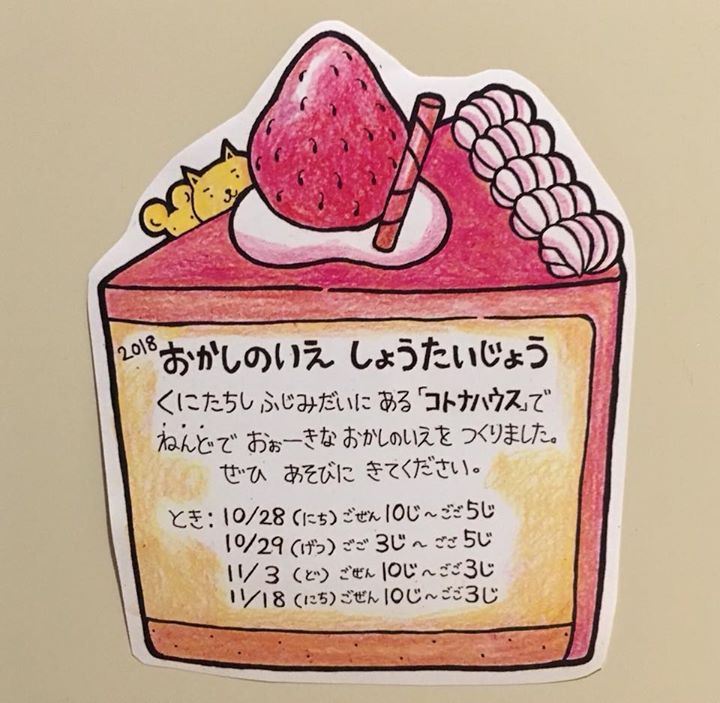 2018 おかしのいえ しょうたいじょう
くにたちし ふじみだいに ある「コトナハウス」で
ねんどで おぉーきな おかしのいえを つくりました。
ぜひ あそびに きてください。
とき: 10/28 (にち) ごぜん 10じ～ごご5じ
10/29 (げつ) ごご 3じ～ ごご 5じ
11/3 (ど) ごぜん 10じ～ごご3じ
11/18 (にち) ごぜん 10じ～ごご3じ